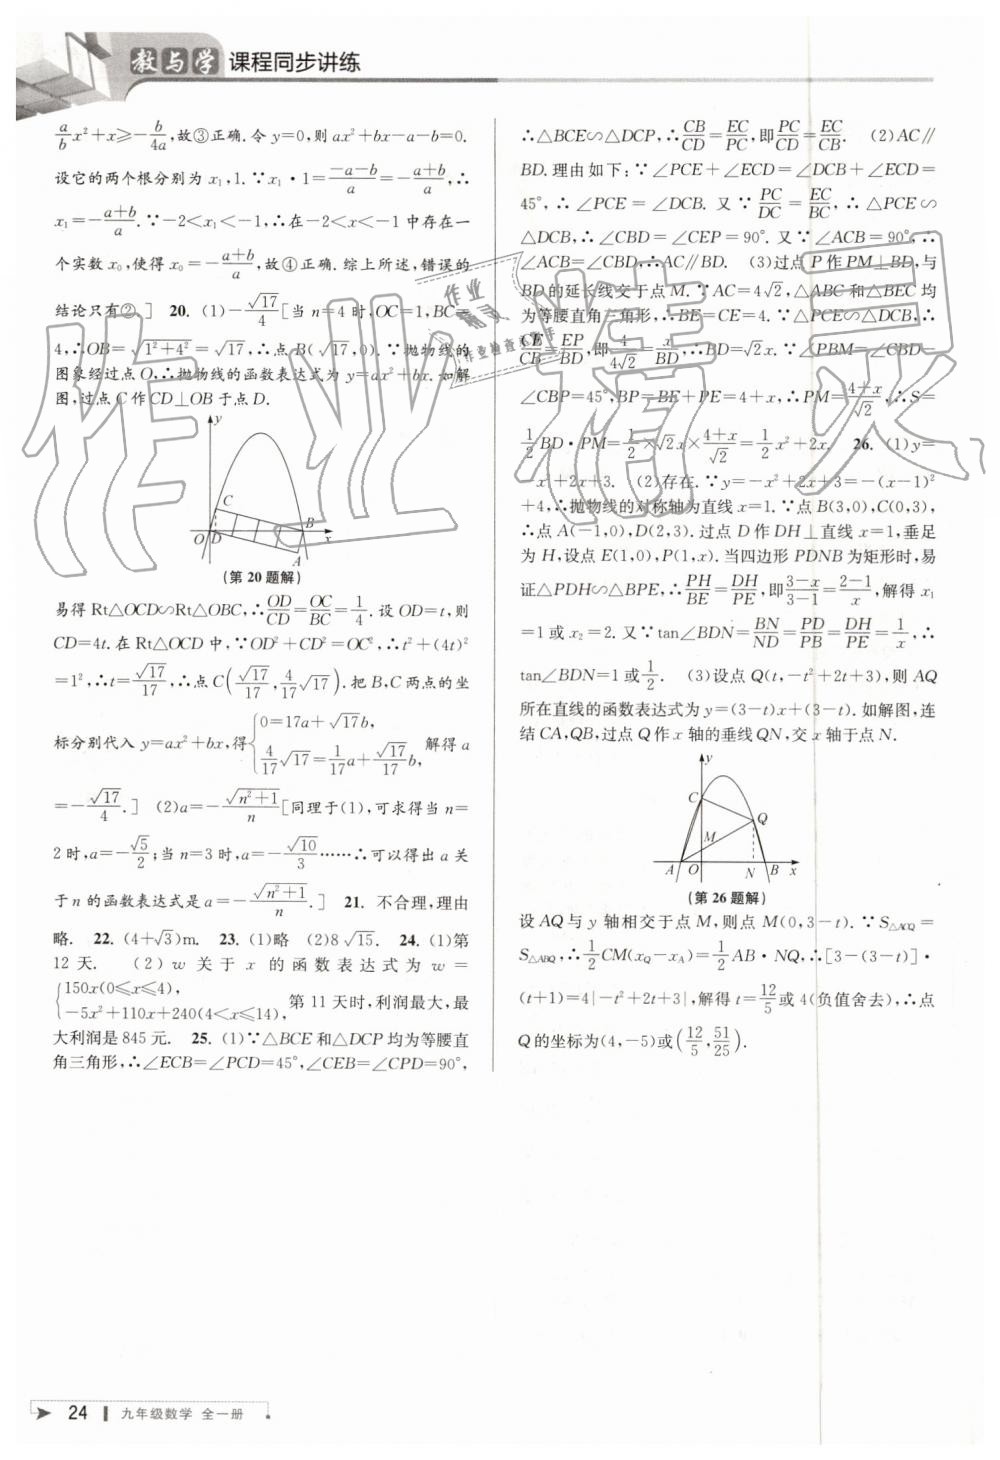 教与学 课程同步讲练
a/b x²+x≥-b/4a,故③正确.令y=0,则ax²+bx-a-b=0.
设它的两个根分别为x₁,1.∵x₁·1=(-a-b)/a=-(a+b)/a,∴
x₁=-(a+b)/a.∵-2<x₁<-1,∴在-2<x<-1中存在一
个实数x₀,使得x₀=-(a+b)/a,故④正确.综上所述,错误的
结论只有②.] 20. (1)-√17/4[当n=4时,OC=1,BC=
4,∴OB=√(1²+4²)=√17,∴点B(√17,0).∵抛物线的
图象经过点O,∴抛物线的函数表达式为y=ax²+bx.如解
图,过点C作CD⊥OB于点D.
y
C
O D B x
A
(第20题解)
易得Rt△OCD∽Rt△OBC,∴OD/CD=OC/BC=1/4.设OD=t,则
CD=4t.在Rt△OCD中,∵OD²+CD²=OC²,∴t²+(4t)²
=1²,∴t=√17/17,∴点C(√17/17,4/17√17).把B,C两点的坐
标分别代入y=ax²+bx,得{0=17a+√17b, 4/17√17=1/17a+√17/17b, 解得a
=-√17/4.] (2)a=-√(n²+1)/n[同理于(1),可求得当n=
2时,a=-√5/2;当n=3时,a=-√10/3……∴可以得出a关
于n的函数表达式是a=-√(n²+1)/n.] 21. 不合理,理由
略. 22. (4+√3)m. 23. (1)略 (2)8√15. 24. (1)第
12天. (2)w关于x的函数表达式为w=
{150x(0≤x≤4), -5x²+110x+240(4<x≤14), 第11天时,利润最大,最
大利润是845元. 25. (1)∵△BCE和△DCP均为等腰直
角三角形,∴∠ECB=∠PCD=45°,∠CEB=∠CPD=90°,
∴△BCE∽△DCP,∴CB/CD=EC/PC,即PC/CD=EC/CB. (2)AC∥
BD.理由如下:∵∠PCE+∠ECD=∠DCB+∠ECD=
45°,∴∠PCE=∠DCB.又∵PC/DC=EC/BC,∴△PCE∽
△DCB,∴∠CBD=∠CEP=90°.又∵∠ACB=90°,∴
∠ACB=∠CBD,∴AC∥BD. (3)过点P作PM⊥BD,与
BD的延长线交于点M.∵AC=4√2,△ABC和△BEC均
为等腰直角三角形,∴BE=CE=4.∵△PCE∽△DCB,∴
CE/CB=EP/BD,即4/4√2=x/BD,∴BD=√2x.∵∠PBM=∠CBD-
∠CBP=45°,BP=BE+PE=4+x,∴PM=(4+x)/√2,∴S=
1/2BD·PM=1/2×√2x×(4+x)/√2=1/2x²+2x. 26. (1)y=
-x²+2x+3. (2)存在.∵y=-x²+2x+3=-(x-1)²
+4,∴抛物线的对称轴为直线x=1.∵点B(3,0),C(0,3),
∴点A(-1,0),D(2,3).过点D作DH⊥直线x=1,垂足
为H,设点E(1,0),P(1,x).当四边形PDNB为矩形时,易
证△PDH∽△BPE,∴PH/BE=DH/PE,即(3-x)/(3-1)=(2-1)/x,解得x₁
=1或x₂=2.又∵tan∠BDN=BN/ND=PD/PB=DH/PE=1/x,∴
tan∠BDN=1或1/2. (3)设点Q(t,-t²+2t+3),则AQ
所在直线的函数表达式为y=(3-t)x+(3-t).如解图,连
结CA,QB,过点Q作x轴的垂线QN,交x轴于点N.
y
C
Q
M
A O N B x
(第26题解)
设AQ与y轴相交于点M,则点M(0,3-t).∵S△ACQ=
S△ABQ,∴1/2CM(xQ-xA)=1/2AB·NQ,∴[3-(3-t)]·
(t+1)=4|-t²+2t+3|,解得t=12/5或4(负值舍去),∴点
Q的坐标为(4,-5)或(12/5,51/25).
作业精灵
24 九年级数学 全一册